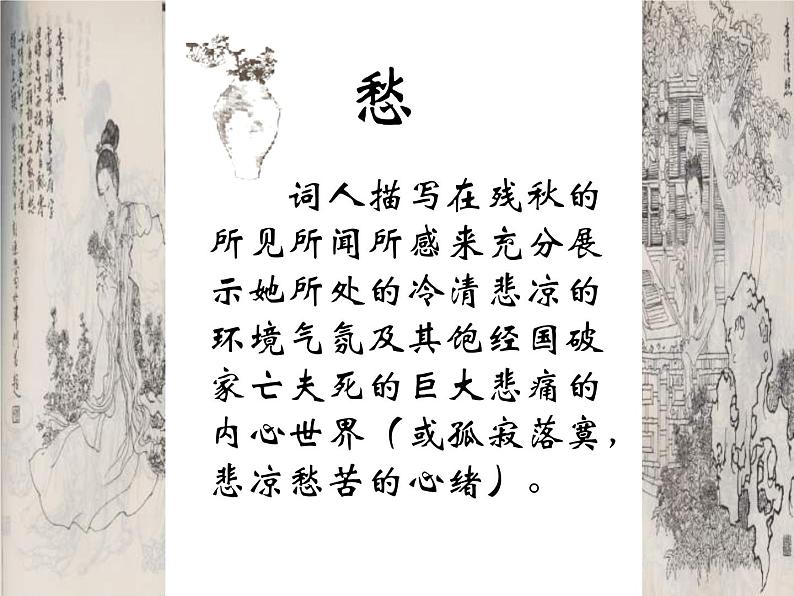 愁
词人描写在残秋的
所见所闻所感来充分展
示她所处的冷清悲凉的
环境气氛及其饱经国破
家亡夫死的巨大悲痛的
内心世界（或孤寂落寞，
悲凉愁苦的心绪）。
李清照
李清照